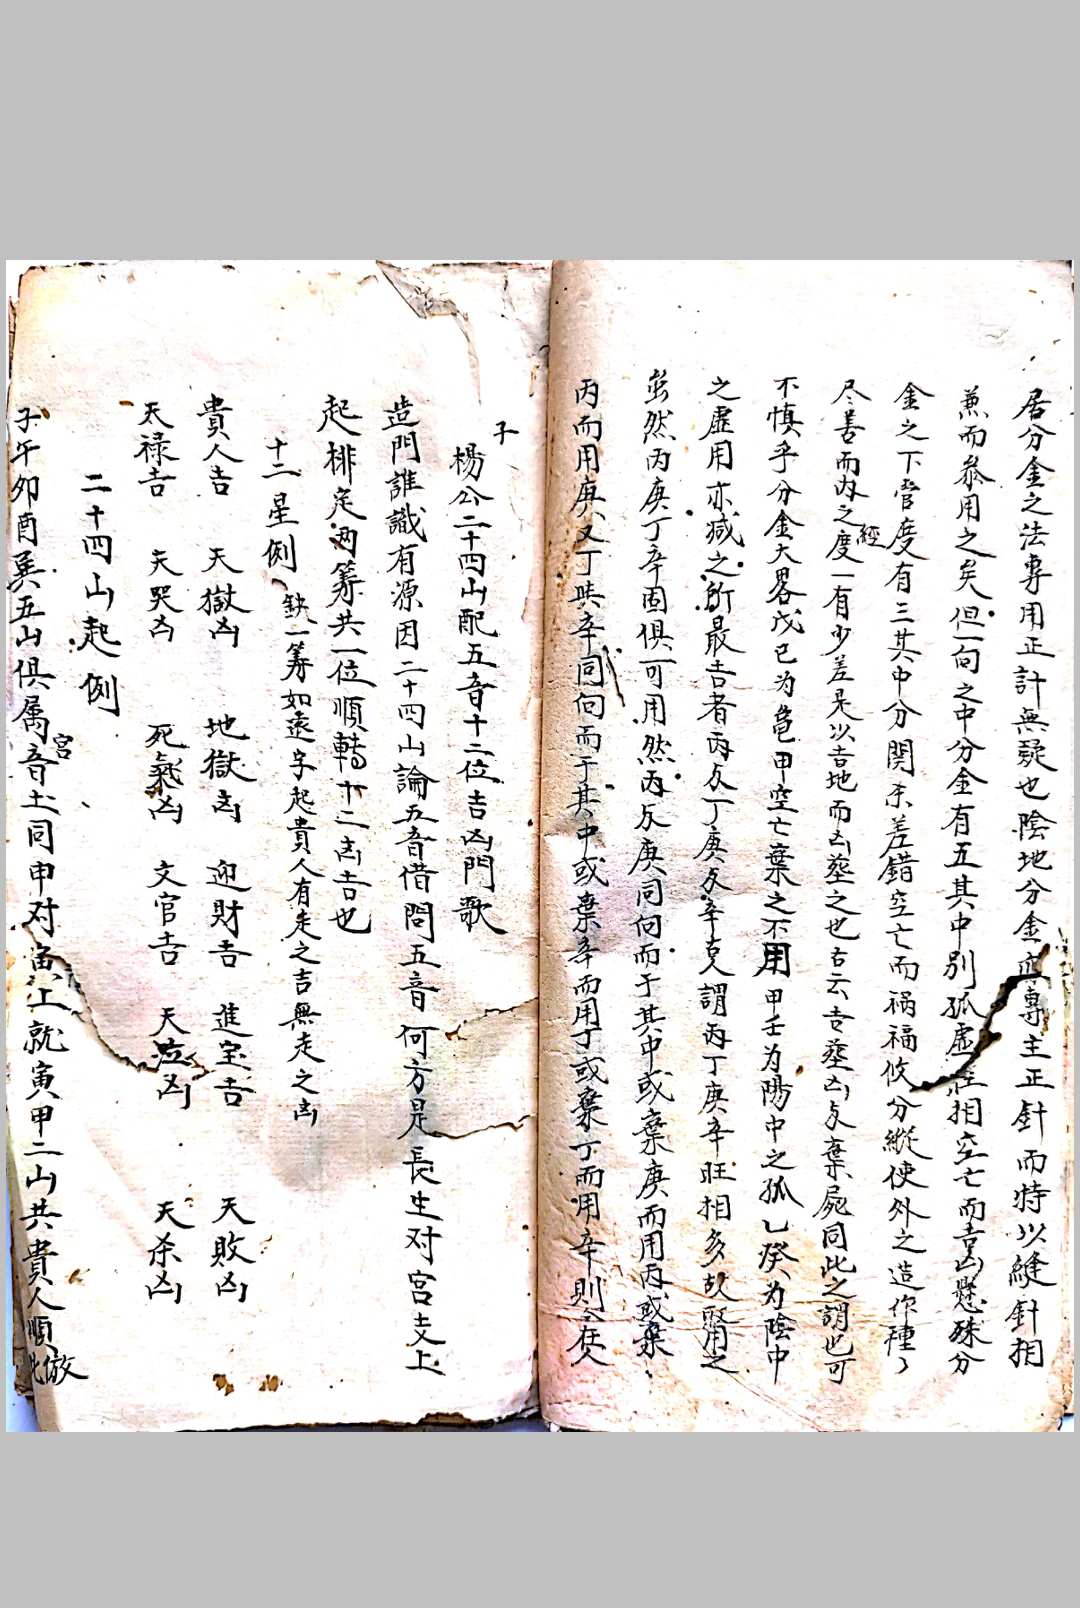 居分金之法專用正計無疑也陰地分金應專主正針而特以縫針相
兼而叅用之矣但一向之中分金有五其中別孤虛旺相空亡而吉凶懸殊分
金之下管度有三其中分関未差錯空亡而禍福攸分縱使外之造作種々
尽善而內之經度一有少差是以吉地而凶塟之也古云吉塟凶與棄屍同此之謂也可
不慎乎分金大畧戊己为龟甲空亡棄之不用甲壬为陽中之孤乙癸为陰中
之虛用亦减之所最吉者丙与丁庚与辛克謂丙丁庚辛旺相多故用之
虽然丙庚丁辛固俱可用然丙与庚同向而于其中或棄庚而用丙或棄
丙而用庚又丁與辛同向而于其中或棄辛而用丁或棄丁而用辛則在人
子
楊公二十四山配五音十二位吉凶門歌
造門誰識有源因二十四山論五音借問五音何方是長生对宮支上
起排定两筹共一位順轉十二凶吉也
十二星例 缺一筹如逺字起貴人有走之吉無走之凶
貴人吉 天獄凶 地獄凶 迎財吉 進宝吉 天敗凶
天祿吉 天哭凶 死氣凶 文官吉 天泣凶 天杀凶
二十四山起例
子午卯酉巽五山俱属宮音土同申对寅上就寅甲二山共貴人順倣此